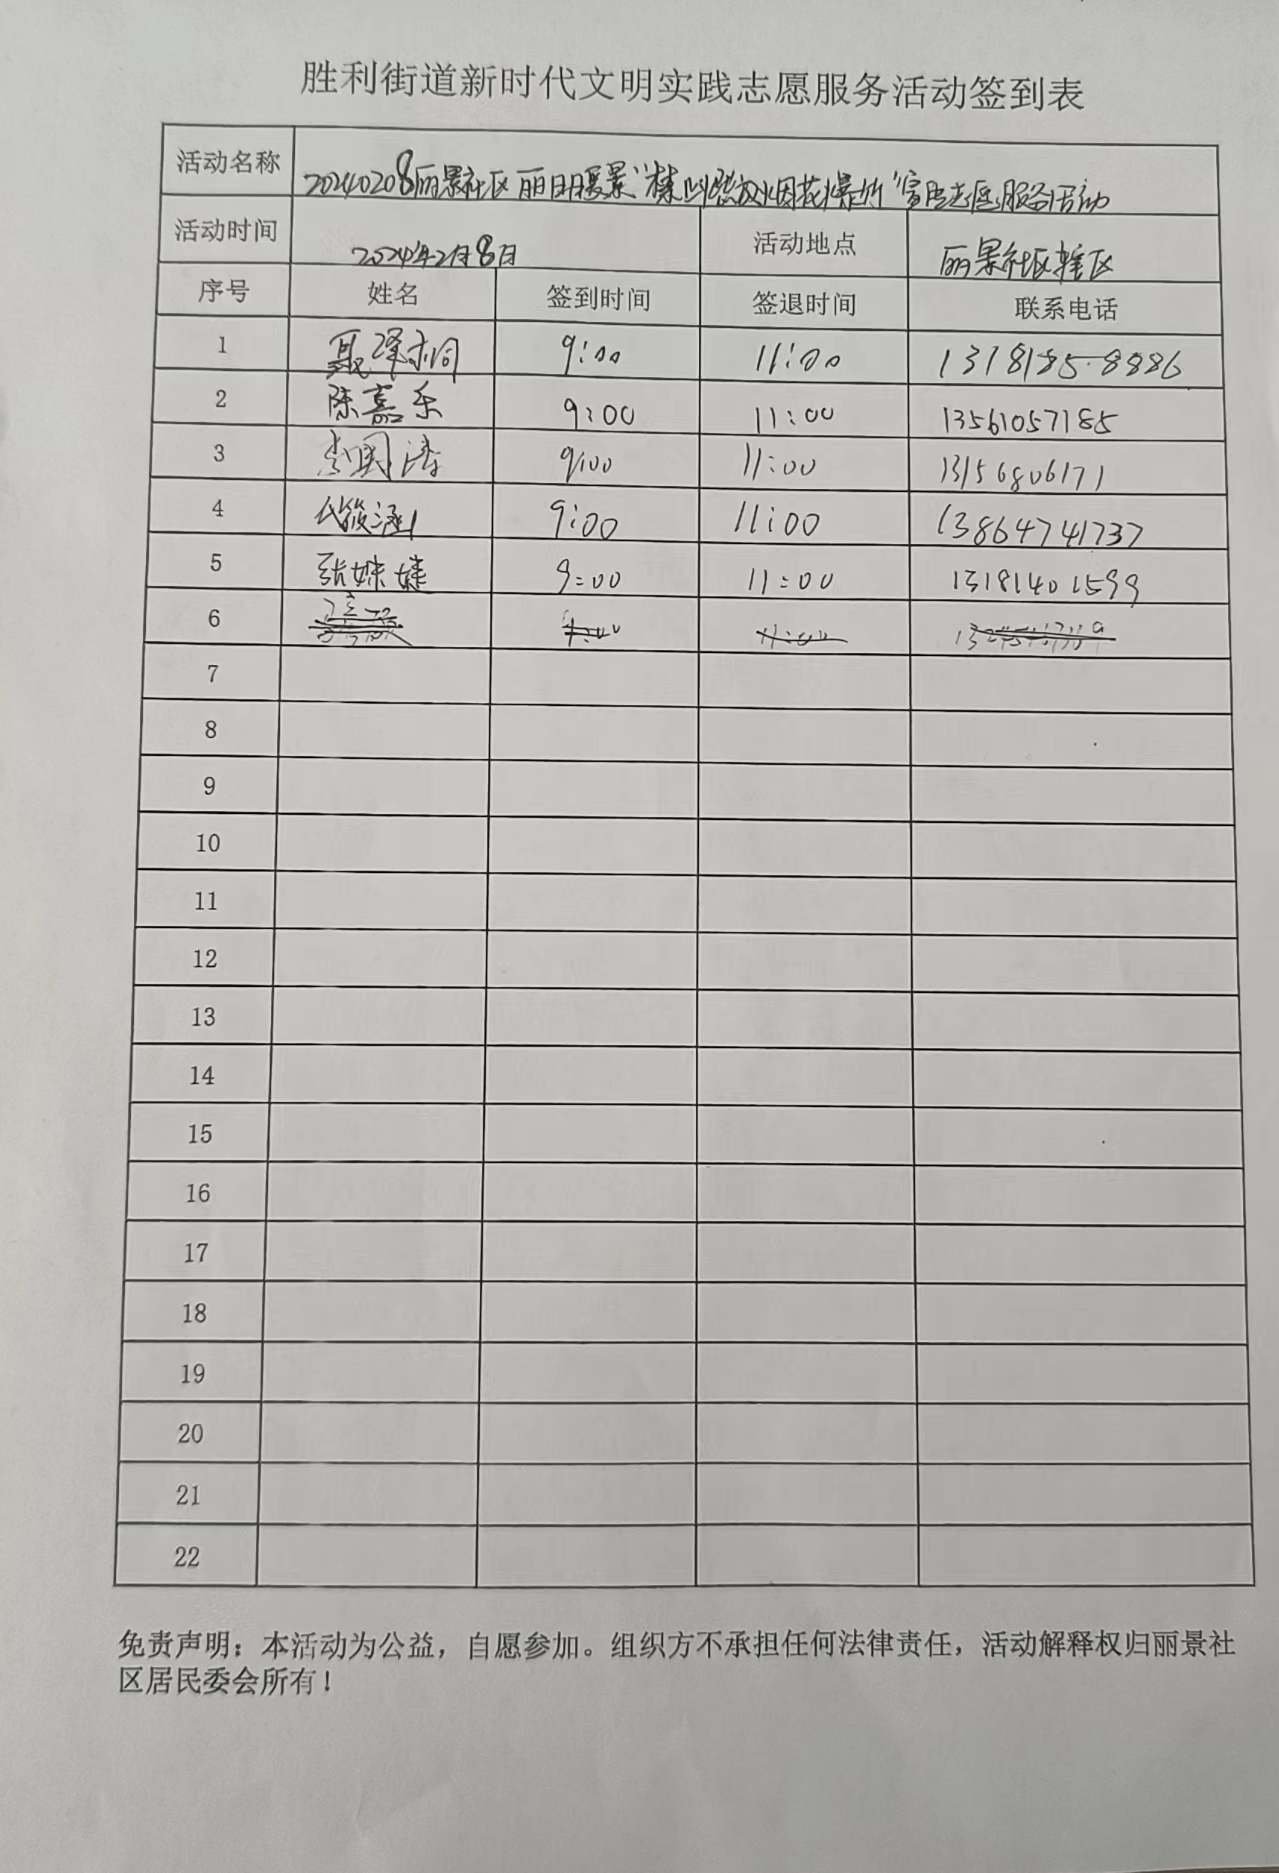 胜利街道新时代文明实践志愿服务活动签到表
活动名称 20240208丽景社区丽日暖景"禁止燃放烟花爆竹"宣传志愿服务活动
活动时间 2024年2月8日 活动地点 丽景社区辖区
序号 姓名 签到时间 签退时间 联系电话
1 聂泽桐 9:00 11:00 13181858886
2 陈嘉乐 9:00 11:00 13561057185
3 李国涛 9:00 11:00 13156806171
4 代筱涵 9:00 11:00 13864741737
5 张姝婕 9:00 11:00 13181401599
6 11:00
7
8
9
10
11
12
13
14
15
16
17
18
19
20
21
22
免责声明：本活动为公益，自愿参加。组织方不承担任何法律责任，活动解释权归丽景社
区居民委会所有！